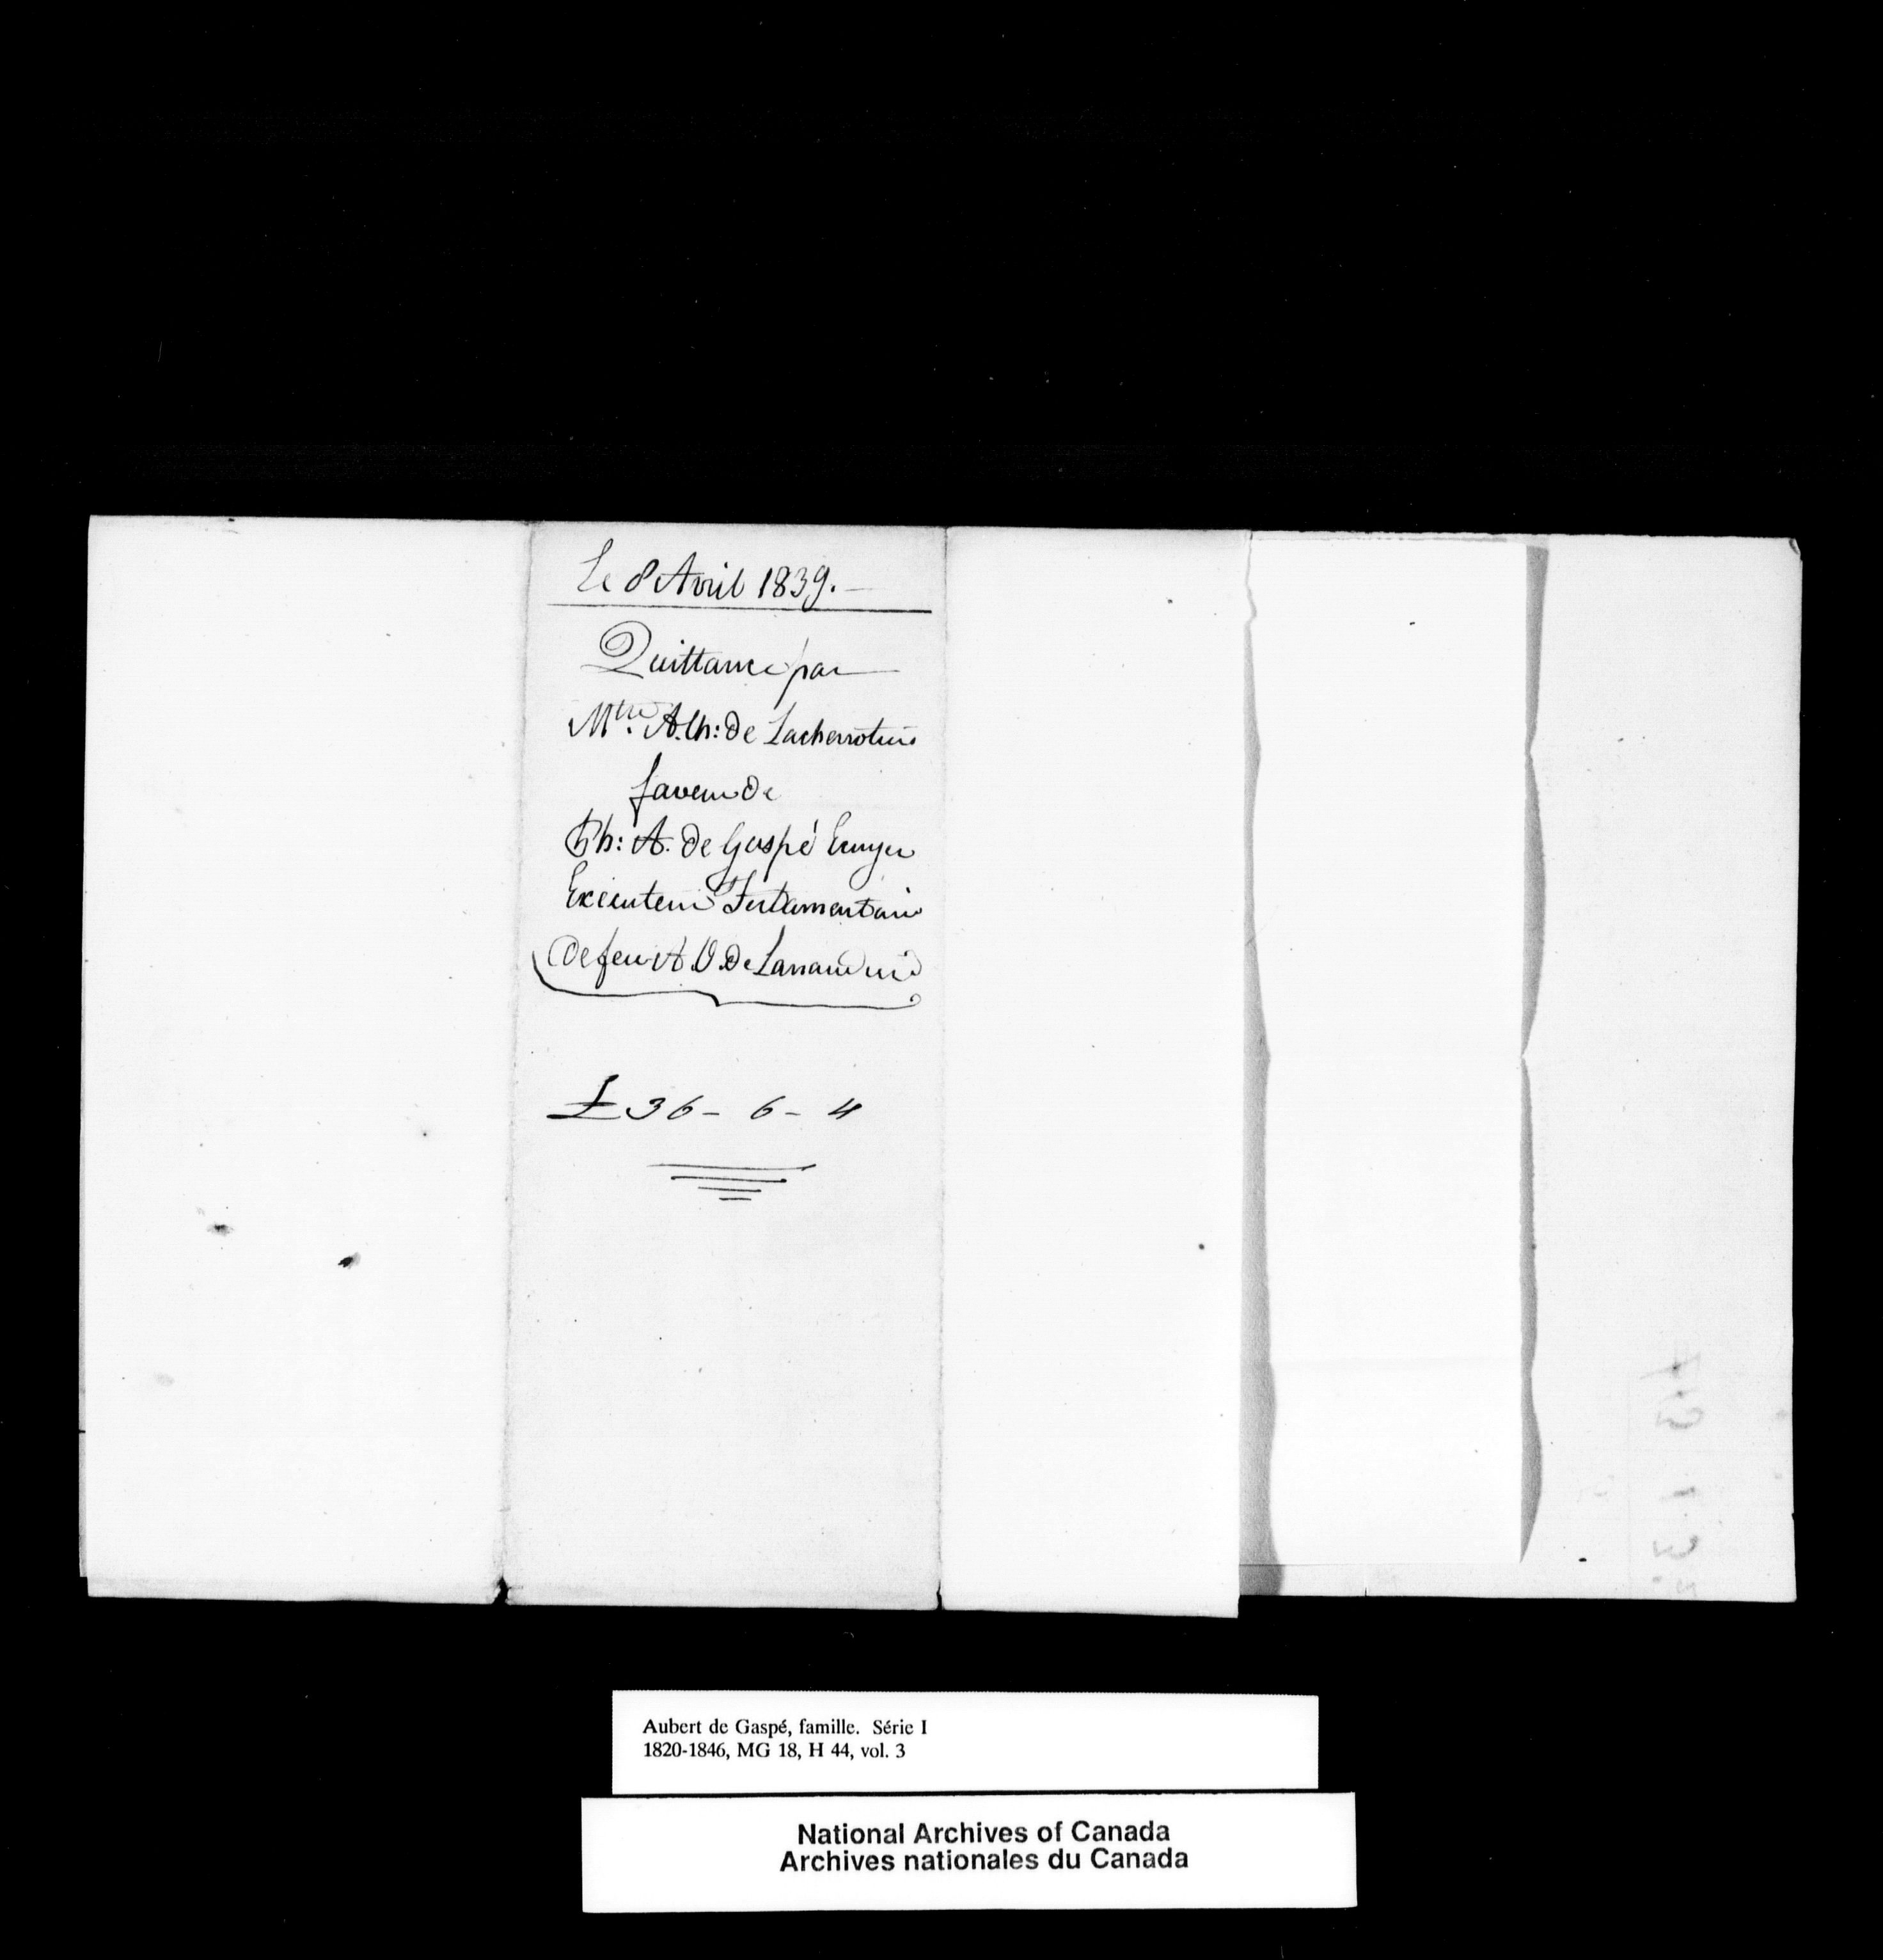 Le 8 Avril 1839.—
Quittance par
Mlle. A. Ch: de Lachevrotière
faveur de
Ph: A. de Gaspé Ecuyer
Exécuteur Testamentaire
de feu A. D. de Lanaudière
£ 36 - 6 - 4
Aubert de Gaspé, famille. Série I
1820-1846, MG 18, H 44, vol. 3
National Archives of Canada
Archives nationales du Canada